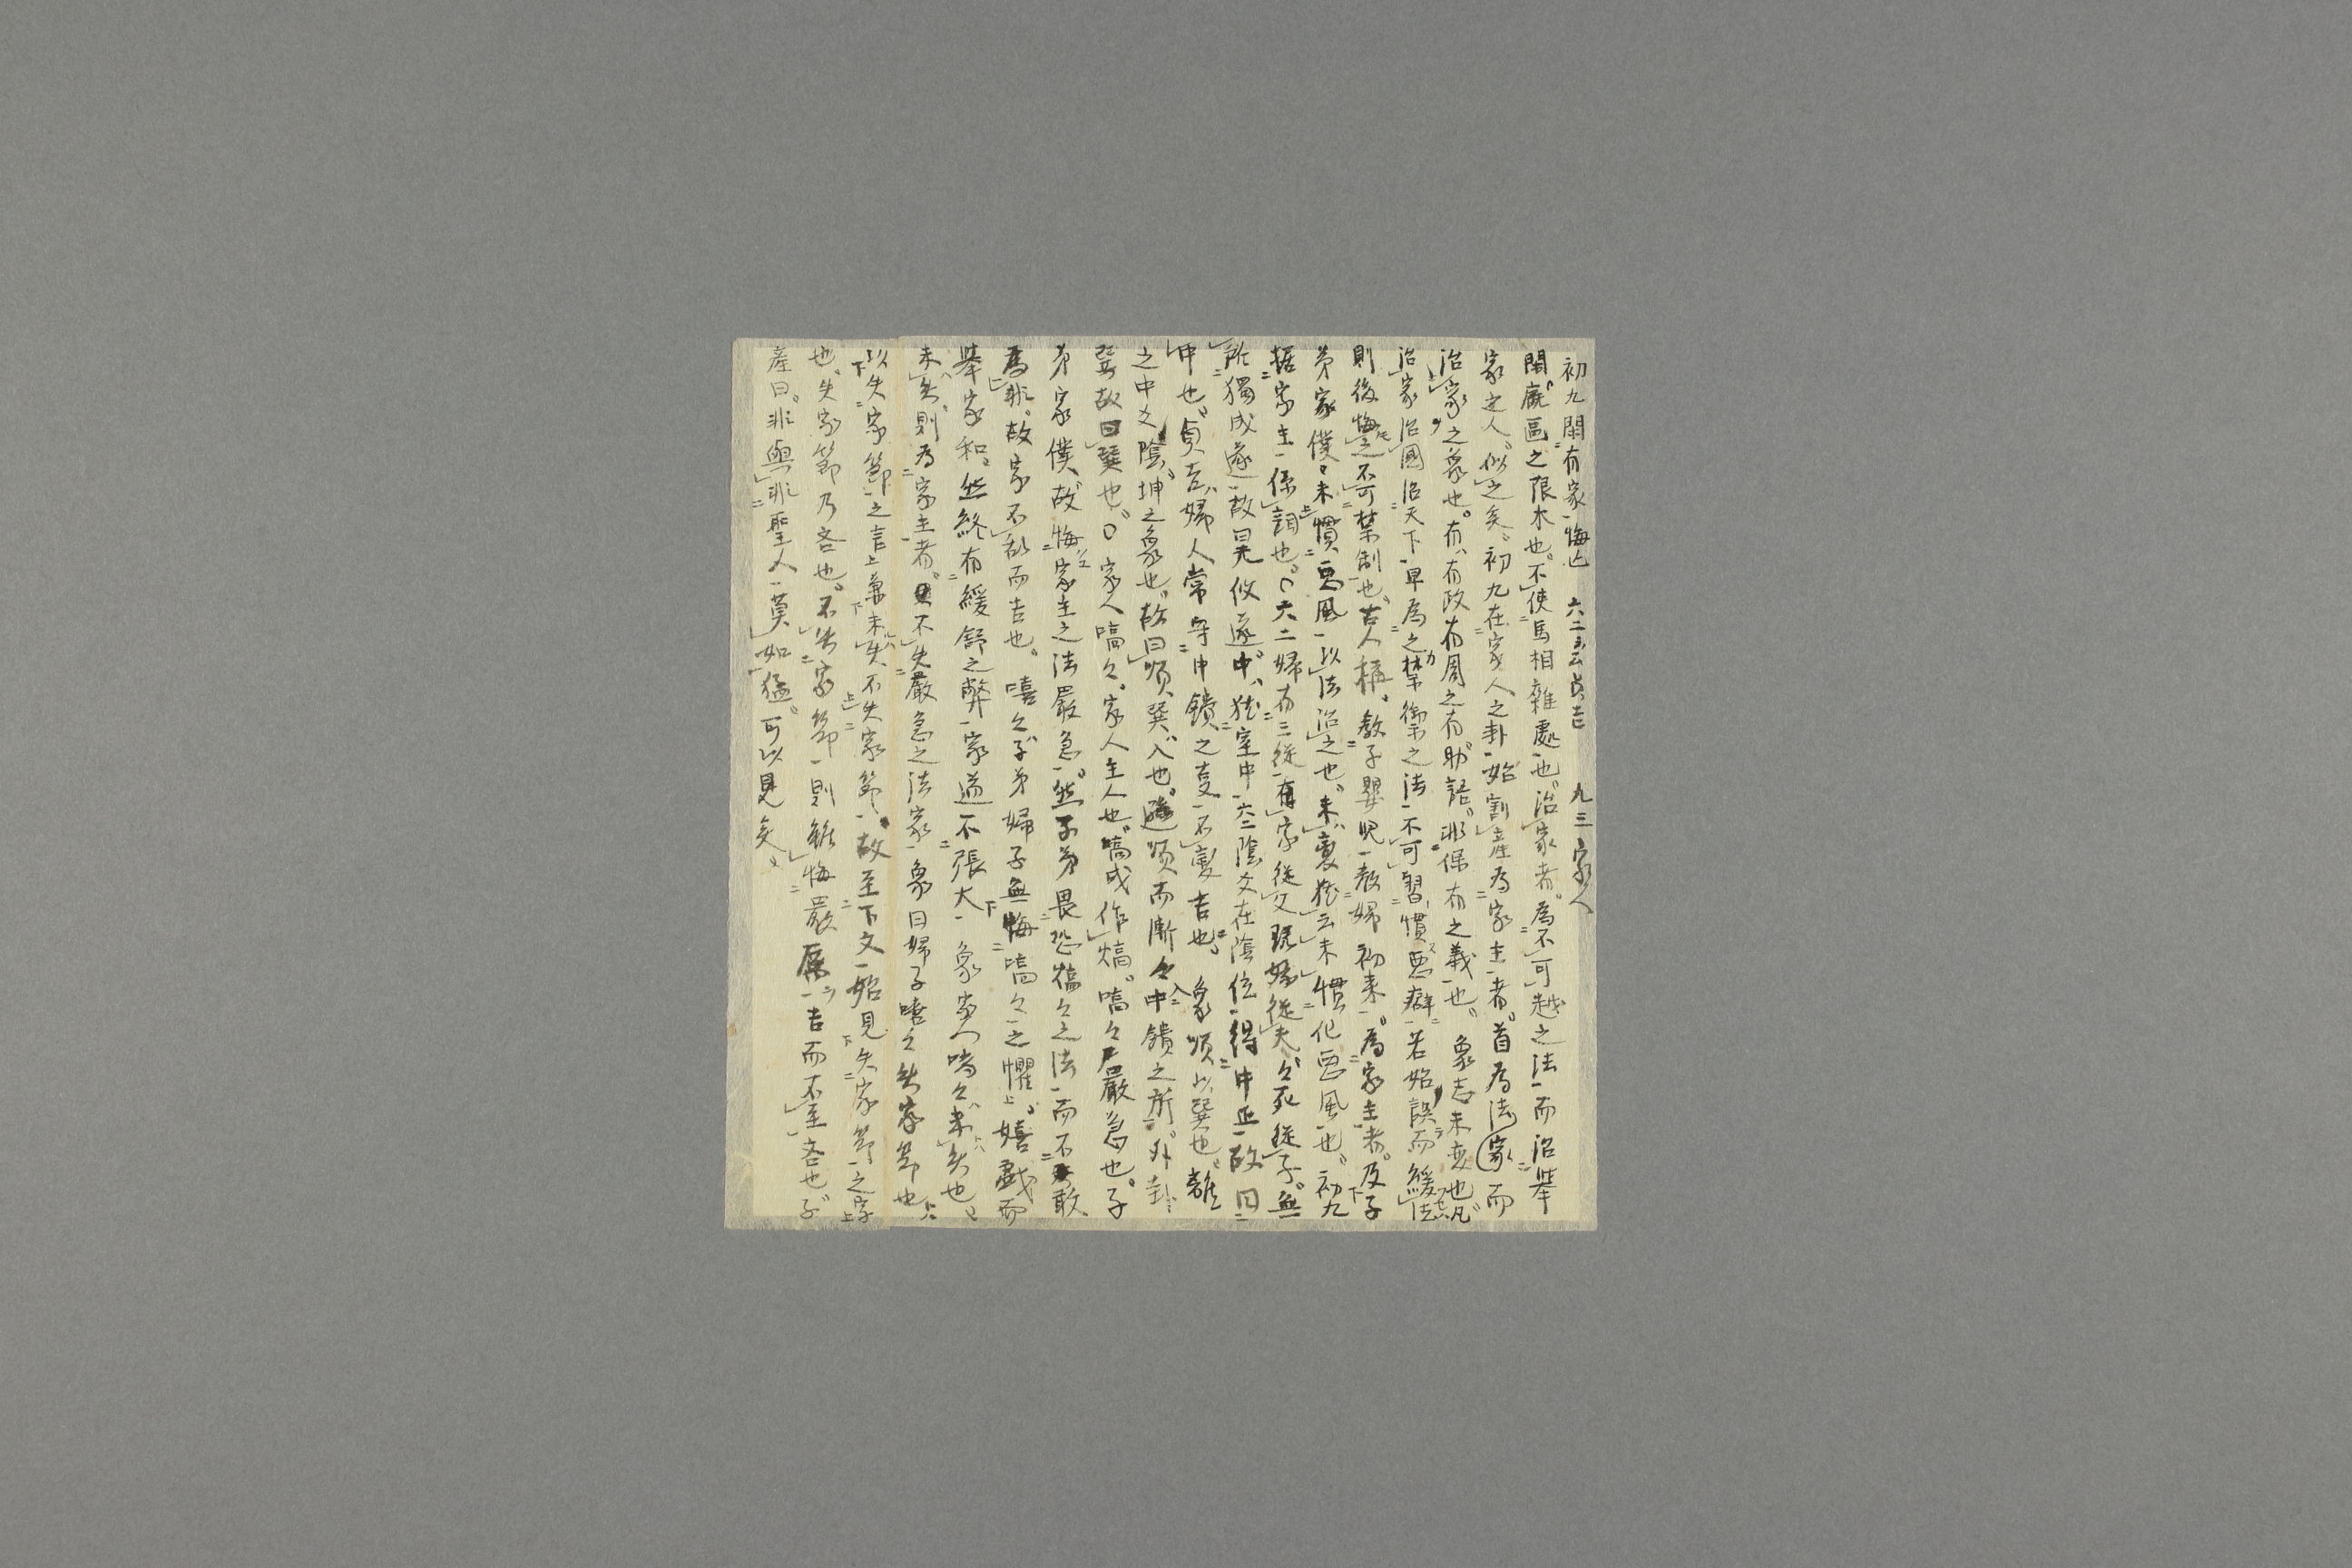 初九閑有家悔亡　六二云貞吉　九三家人
閑廐區之限木也。不使馬相雜處也。治家者。為不可越之法而治挙
家之人。似之矣。初九在家人之卦始割產為家主者。首為法家而
治家之象也。有、有政有周之有助語。非保有之義也。象志未変也凡
治家治國治天下早為之禁禦之法不可習慣悪癖若始誤而緩法
則後悔之不可禁制也。古人稱。教子嬰児教婦初来。為家主者。及子
弟家僕。未慣悪風以法治之也。未変猶云未慣化悪風也。初九
据家主係詞也。〇六二婦有三従有家従父既嫁従夫々死従子。無
所獨成遂故曰无攸遂。中、猶室中六二陰爻在陰位得中正故曰
中也。貞吉、婦人常守中饋之変不変吉也。象順以巽也。離
之中爻陰。坤之象也。故曰順、巽、入也。遜順而漸々中饋之所。外卦
巽故曰巽也。〇家人嗃々。家人主人也。嗃或作熇。嗃々嚴急也。子
弟家僕、故悔家主之法嚴急。然子弟畏恐熇々之法而不敢
為非。故家不乱而吉也。嘻々子弟婦子無悔嗃々之懼。嬉戯而
挙家和。然終有緩舒之弊家道不張大象家人嗃々未失也
未失。則為家主者。不失嚴急之法家象曰婦子嘻々失家節也
以失家節之言上兼未失不失家節。故至下文始見失家節之字
也。失家節乃吝也。不失家節則雖悔嚴厲吉而不至吝也子
產曰。非與非聖人莫如猛。可以見矣。